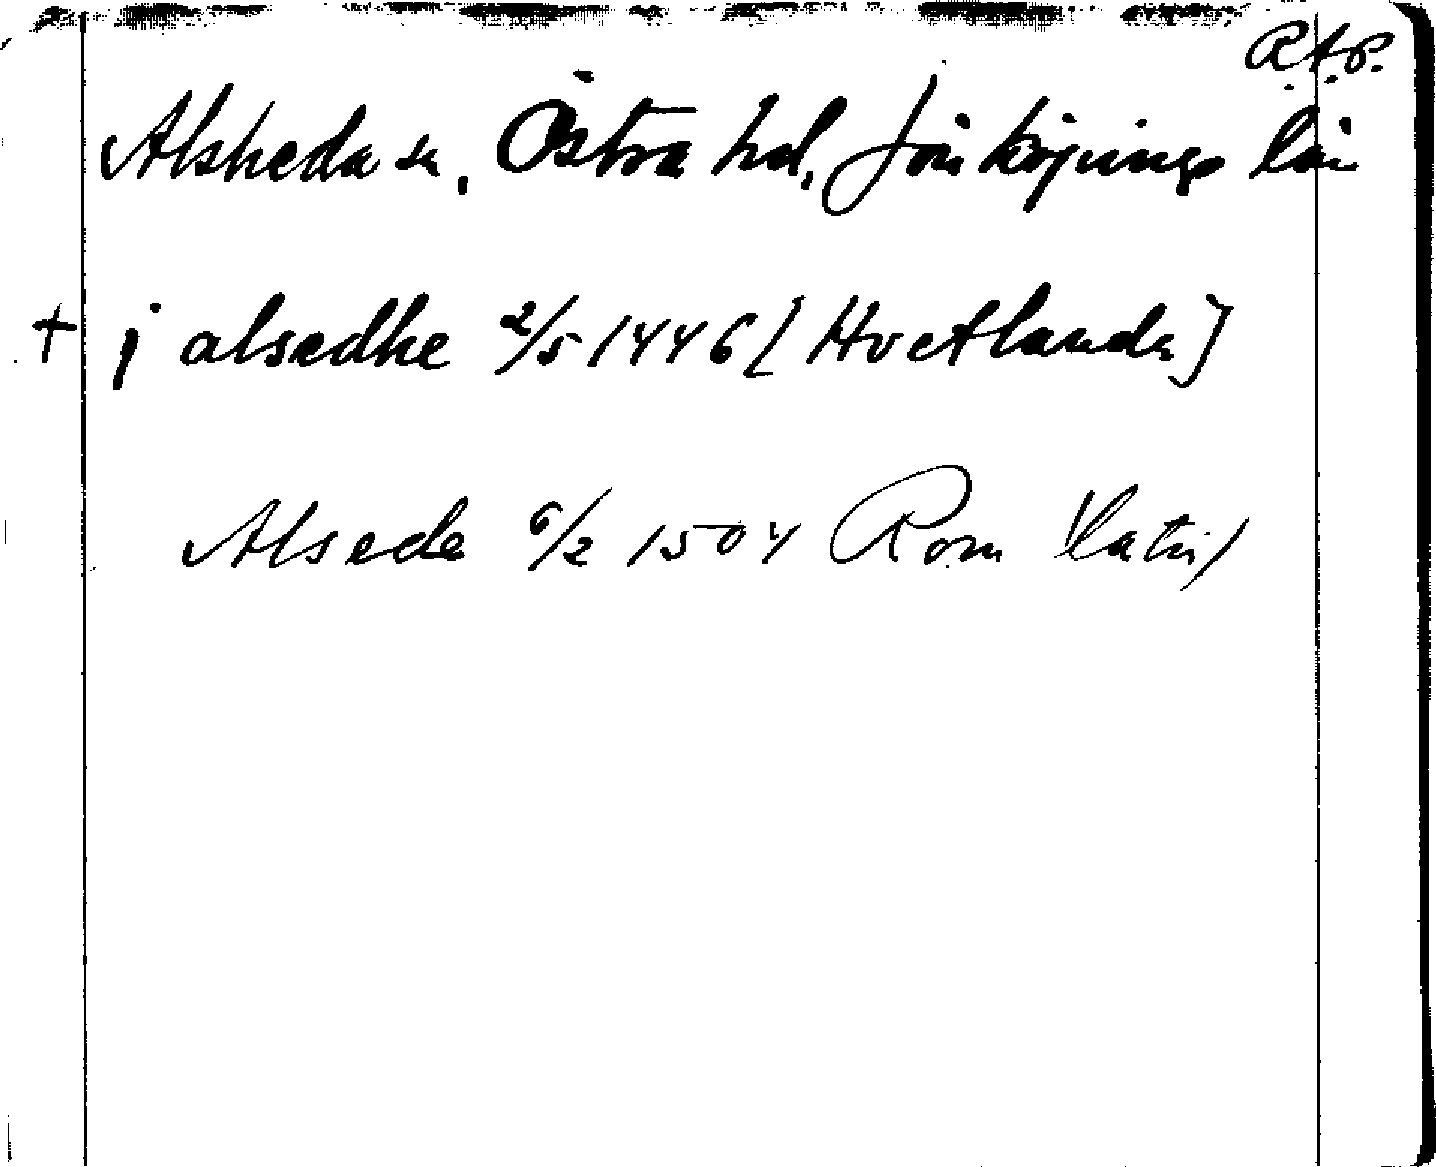 R.A.P.
Alsheda sn, Östra hd, Jönköpings län
+ j alsedhe 2/5 1446 [Hvetlanda]
Alsede 6/2 1504 Rom (latin)